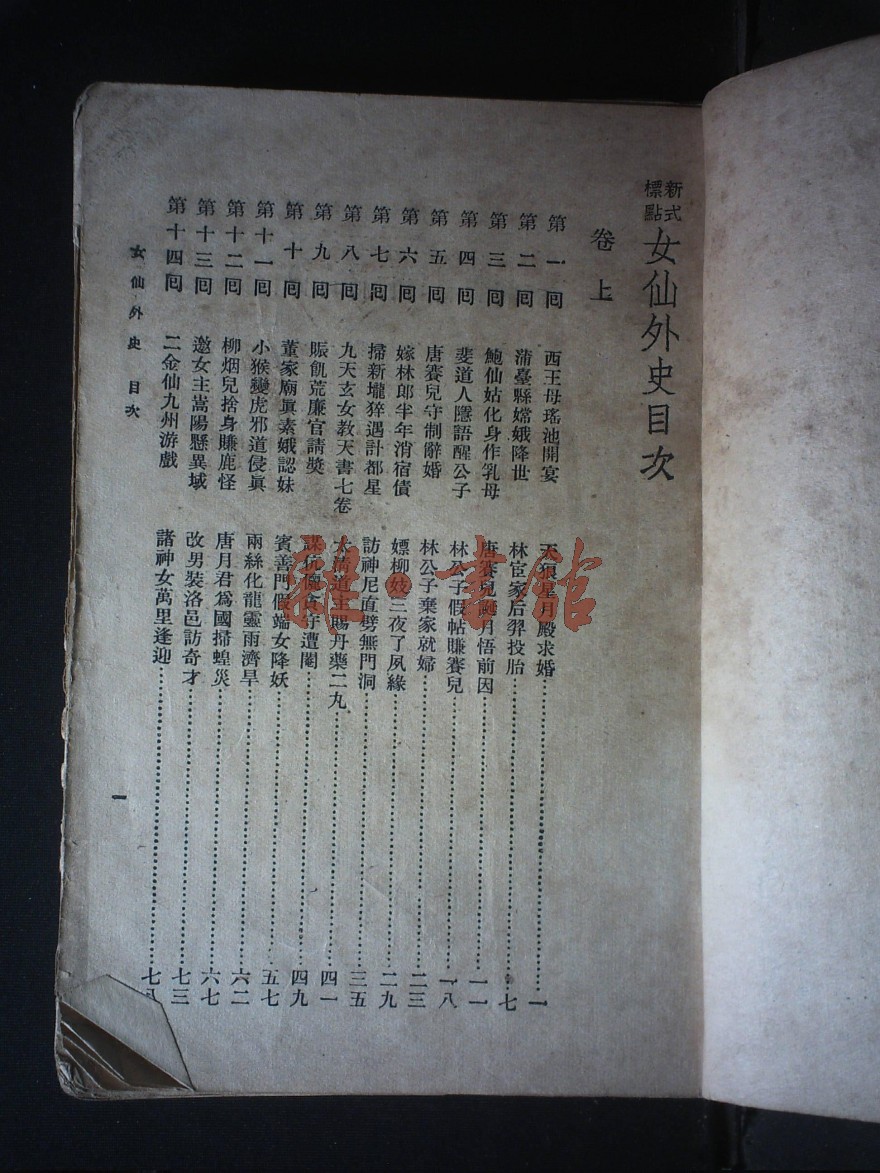 新式標點女仙外史目次
卷上
第一囘 西王母瑤池開宴 天狼星月殿求婚⋯⋯一
第二囘 蒲臺縣嫦娥降世 林宦家后羿投胎⋯⋯七
第三囘 鮑仙姑化身作乳母 唐賽兒誕月悟前因⋯⋯一一
第四囘 斐道人隱語醒公子 林公子假帖賺賽兒⋯⋯一八
第五囘 唐賽兒守制辭婚 林公子棄家就婦⋯⋯二三
第六囘 嫁林郎半年消宿債 嫖柳妓三夜了夙緣⋯⋯二九
第七囘 掃新壠猝遇計都星 訪神尼直劈無門洞⋯⋯三五
第八囘 九天玄女教天書七卷 太淸道主賜丹藥二九⋯⋯四一
第九囘 賑飢荒廉官請獎 謀伉儷貪守遭閹⋯⋯四九
第十囘 董家廟眞素娥認妹 賓善門假端女降妖⋯⋯五七
第十一囘 小猴變虎邪道侵眞 兩絲化龍靈雨濟旱⋯⋯六二
第十二囘 柳烟兒捨身賺鹿怪 唐月君爲國掃蝗災⋯⋯六七
第十三囘 邀女主嵩陽懸異域 改男裝洛邑訪奇才⋯⋯七三
第十四囘 二金仙九州游戲 諸神女萬里逢迎⋯⋯七八
女仙外史 目次
一
雜·書館